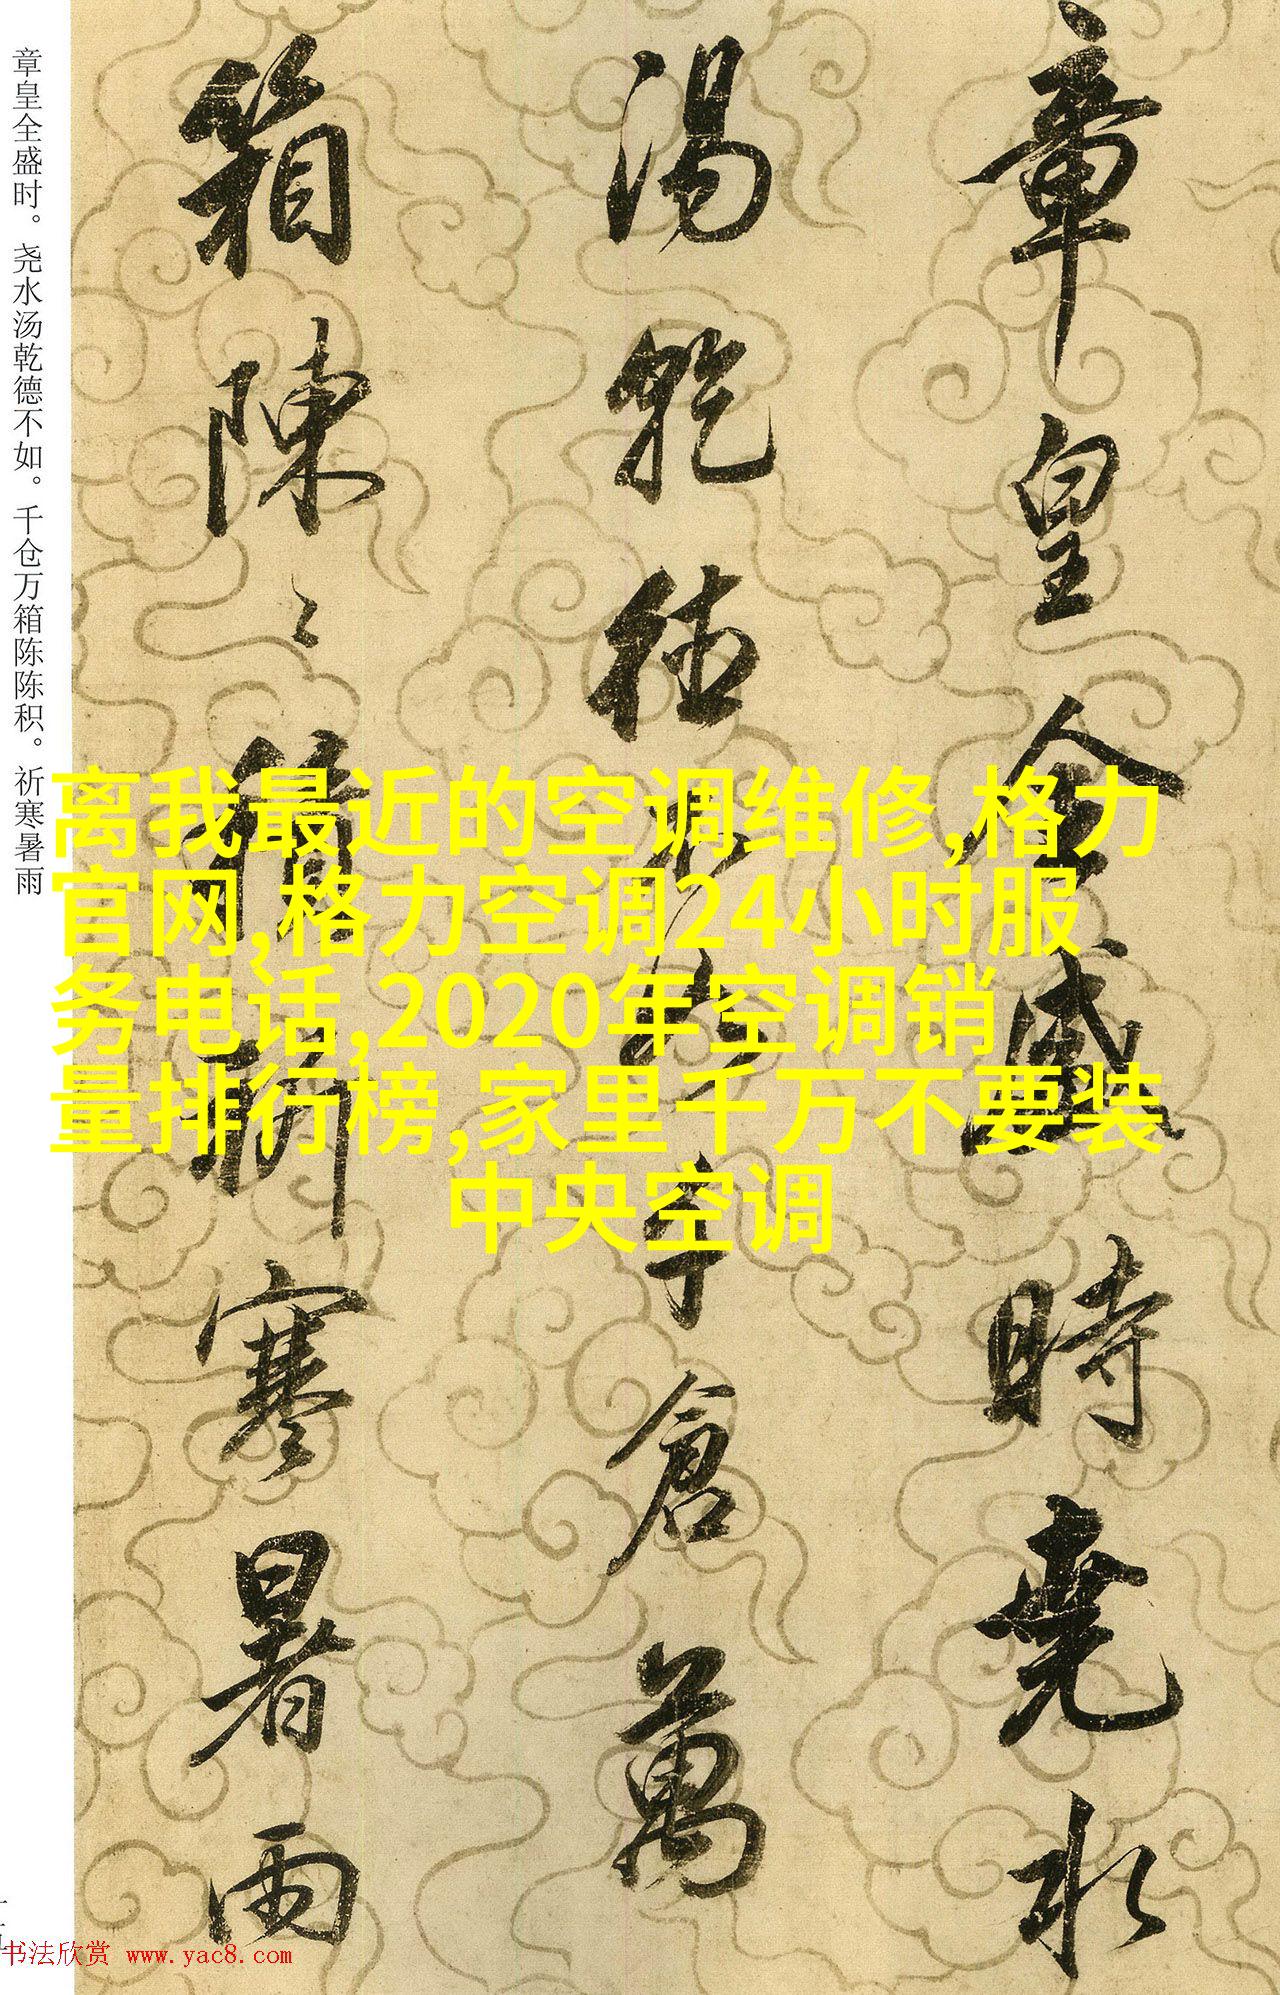 章皇全盛时。尧水汤乾德不如。千仓万箱陈陈积。祈寒暑雨
章皇全盛時堯水
湯乾德不如千倉萬
箱陳〻積祁寒暑雨
离我最近的空调维修,格力
官网,格力空调24小时服
务电话,2020年空调销
量排行榜,家里千万不要装
中央空调
书法欣赏 www.yac8.com